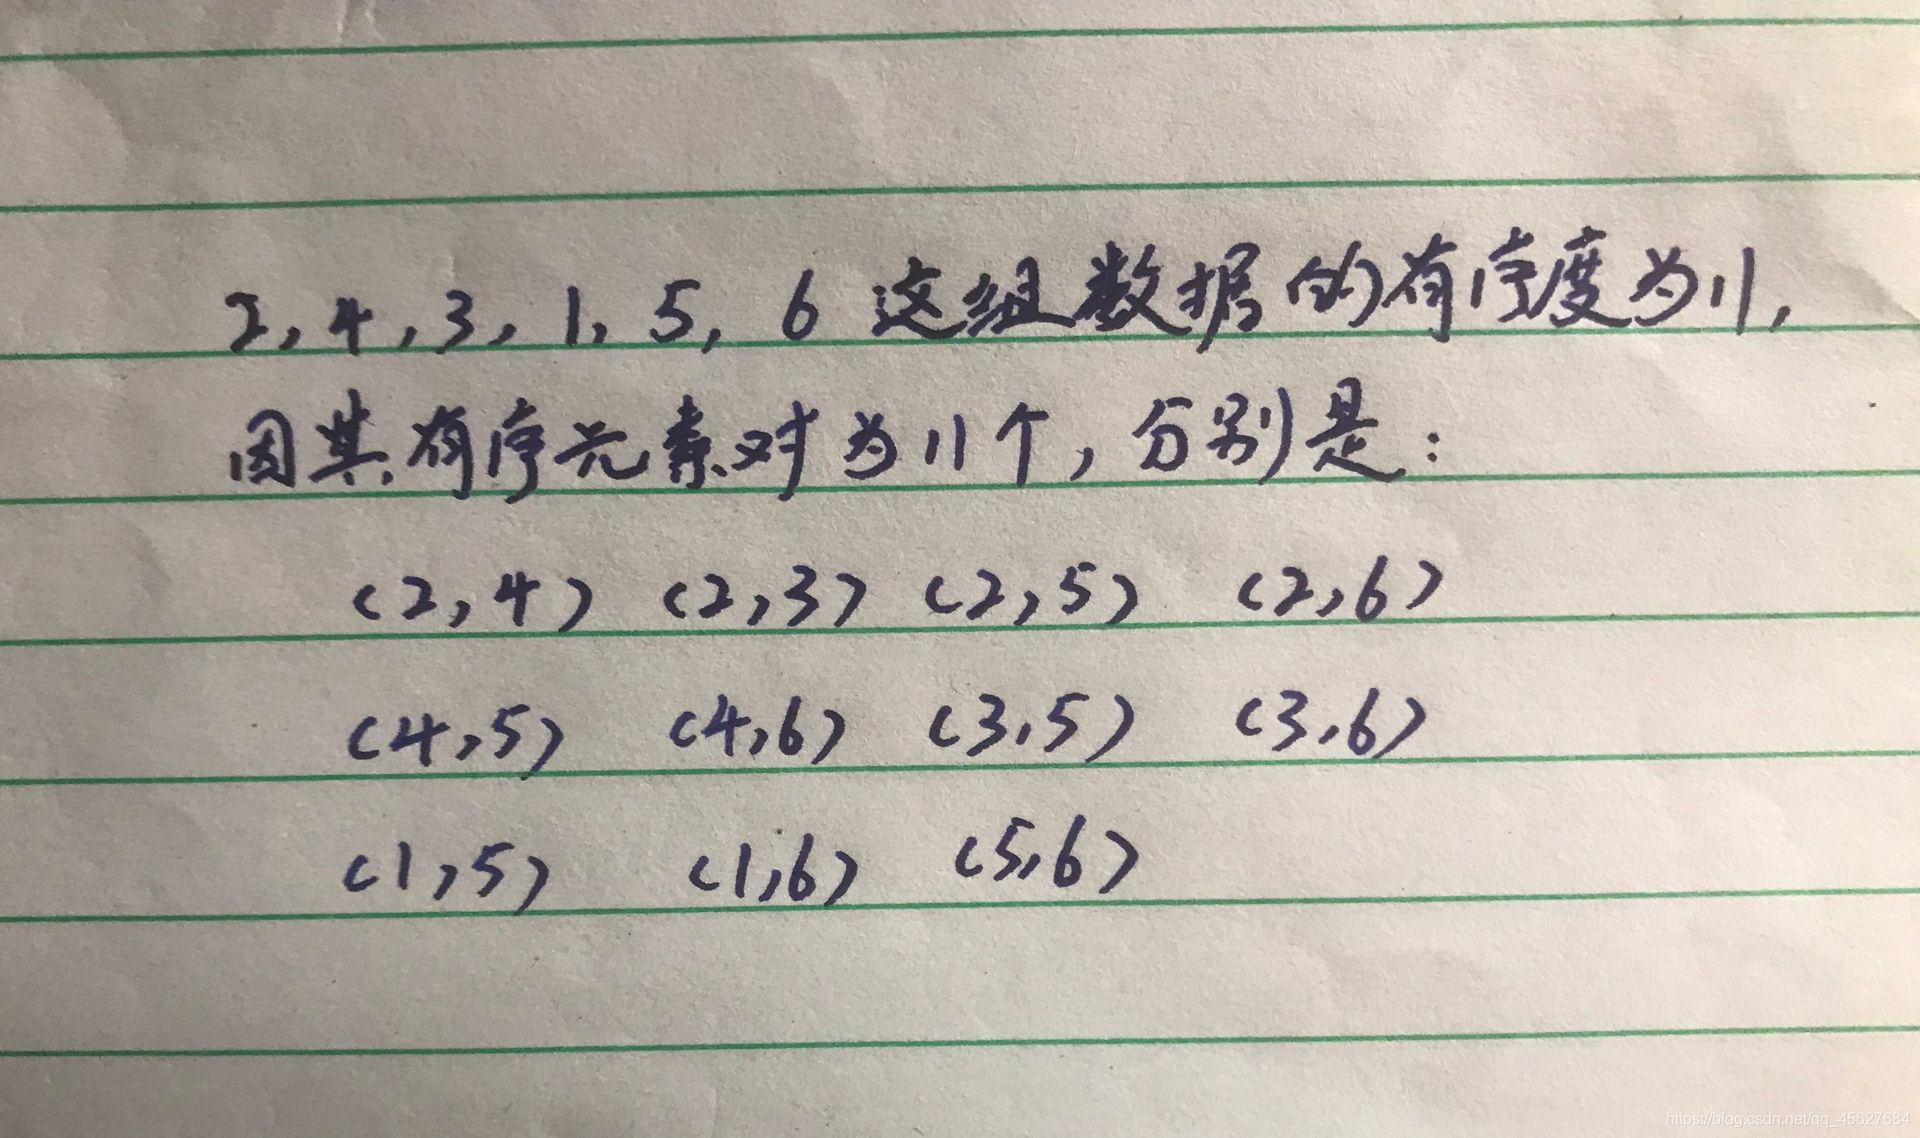 2,4,3,1,5,6 这组数据的有序度为11,
因其有序元素对为11个,分别是:
(2,4) (2,3) (2,5) (2,6)
(4,5) (4,6) (3,5) (3,6)
(1,5) (1,6) (5,6)
https://blog.csdn.net/qq_45627684